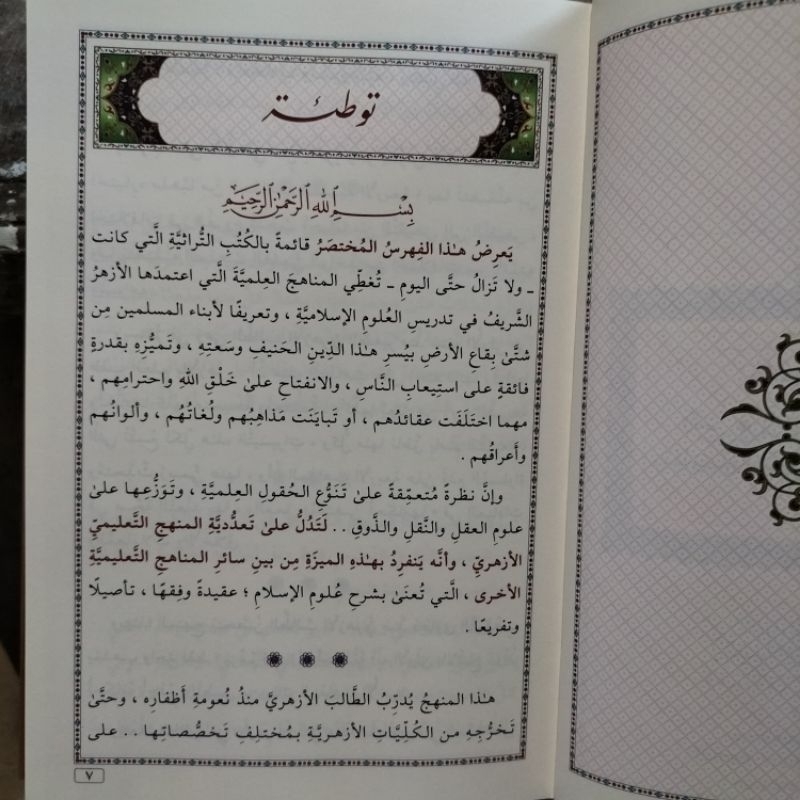 توطئة
بِسْمِ اللهِ الرَّحْمٰنِ الرَّحِيْمِ
يَعرِضُ هٰذا الفِهرسُ المُختصَرُ قائمةً بالكُتُبِ التُّراثيَّةِ الَّتي كانت
ـ ولا تَزالُ حتَّى اليومِ ـ تُغطِّي المناهجَ العِلميَّةَ الَّتي اعتمدَها الأزهرُ
الشَّريفُ في تدريسِ العُلومِ الإسلاميَّةِ ، وتعريفًا لأبناء المسلمين مِن
شتَّىٰ بِقاعِ الأرضِ بيُسرِ هٰذا الدِّينِ الحَنيفِ وسَعتِهِ ، وتَميُّزِهِ بقدرةٍ
فائقةٍ على استيعابِ النَّاسِ ، والانفتاحِ علىٰ خَلْقِ اللهِ واحترامِهم ،
مهما اختَلَفَت عقائدُهم ، أو تَبايَنَت مَذاهبُهم ولُغاتُهُم ، وألوانُهم
وأعراقُهم .
وإنَّ نظرةً مُتعمِّقةً علىٰ تَنوُّعِ الحُقولِ العِلميَّةِ ، وتَوزُّعِها علىٰ
علومِ العقلِ والنَّقلِ والذَّوقِ .. لَتَدُلُّ علىٰ تعدُّديَّةِ المنهجِ التَّعليميِّ
الأزهريِّ ، وأنَّه يَنفرِدُ بهٰذهِ الميزةِ مِن بينِ سائرِ المناهجِ التَّعليميَّةِ
الأخرى ، الَّتي تُعنَىٰ بشرحِ عُلومِ الإسلامِ ؛ عقيدةً وفِقهًا ، تأصيلًا
وتفريعًا .
هٰذا المنهجُ يُدرِّبُ الطَّالبَ الأزهريَّ منذُ نُعومةِ أظفارِه ، وحتَّىٰ
تَخرُّجِهِ من الكُلِّيَّاتِ الأزهريَّةِ بمُختلِفِ تَخصُّصاتِها .. على
٧